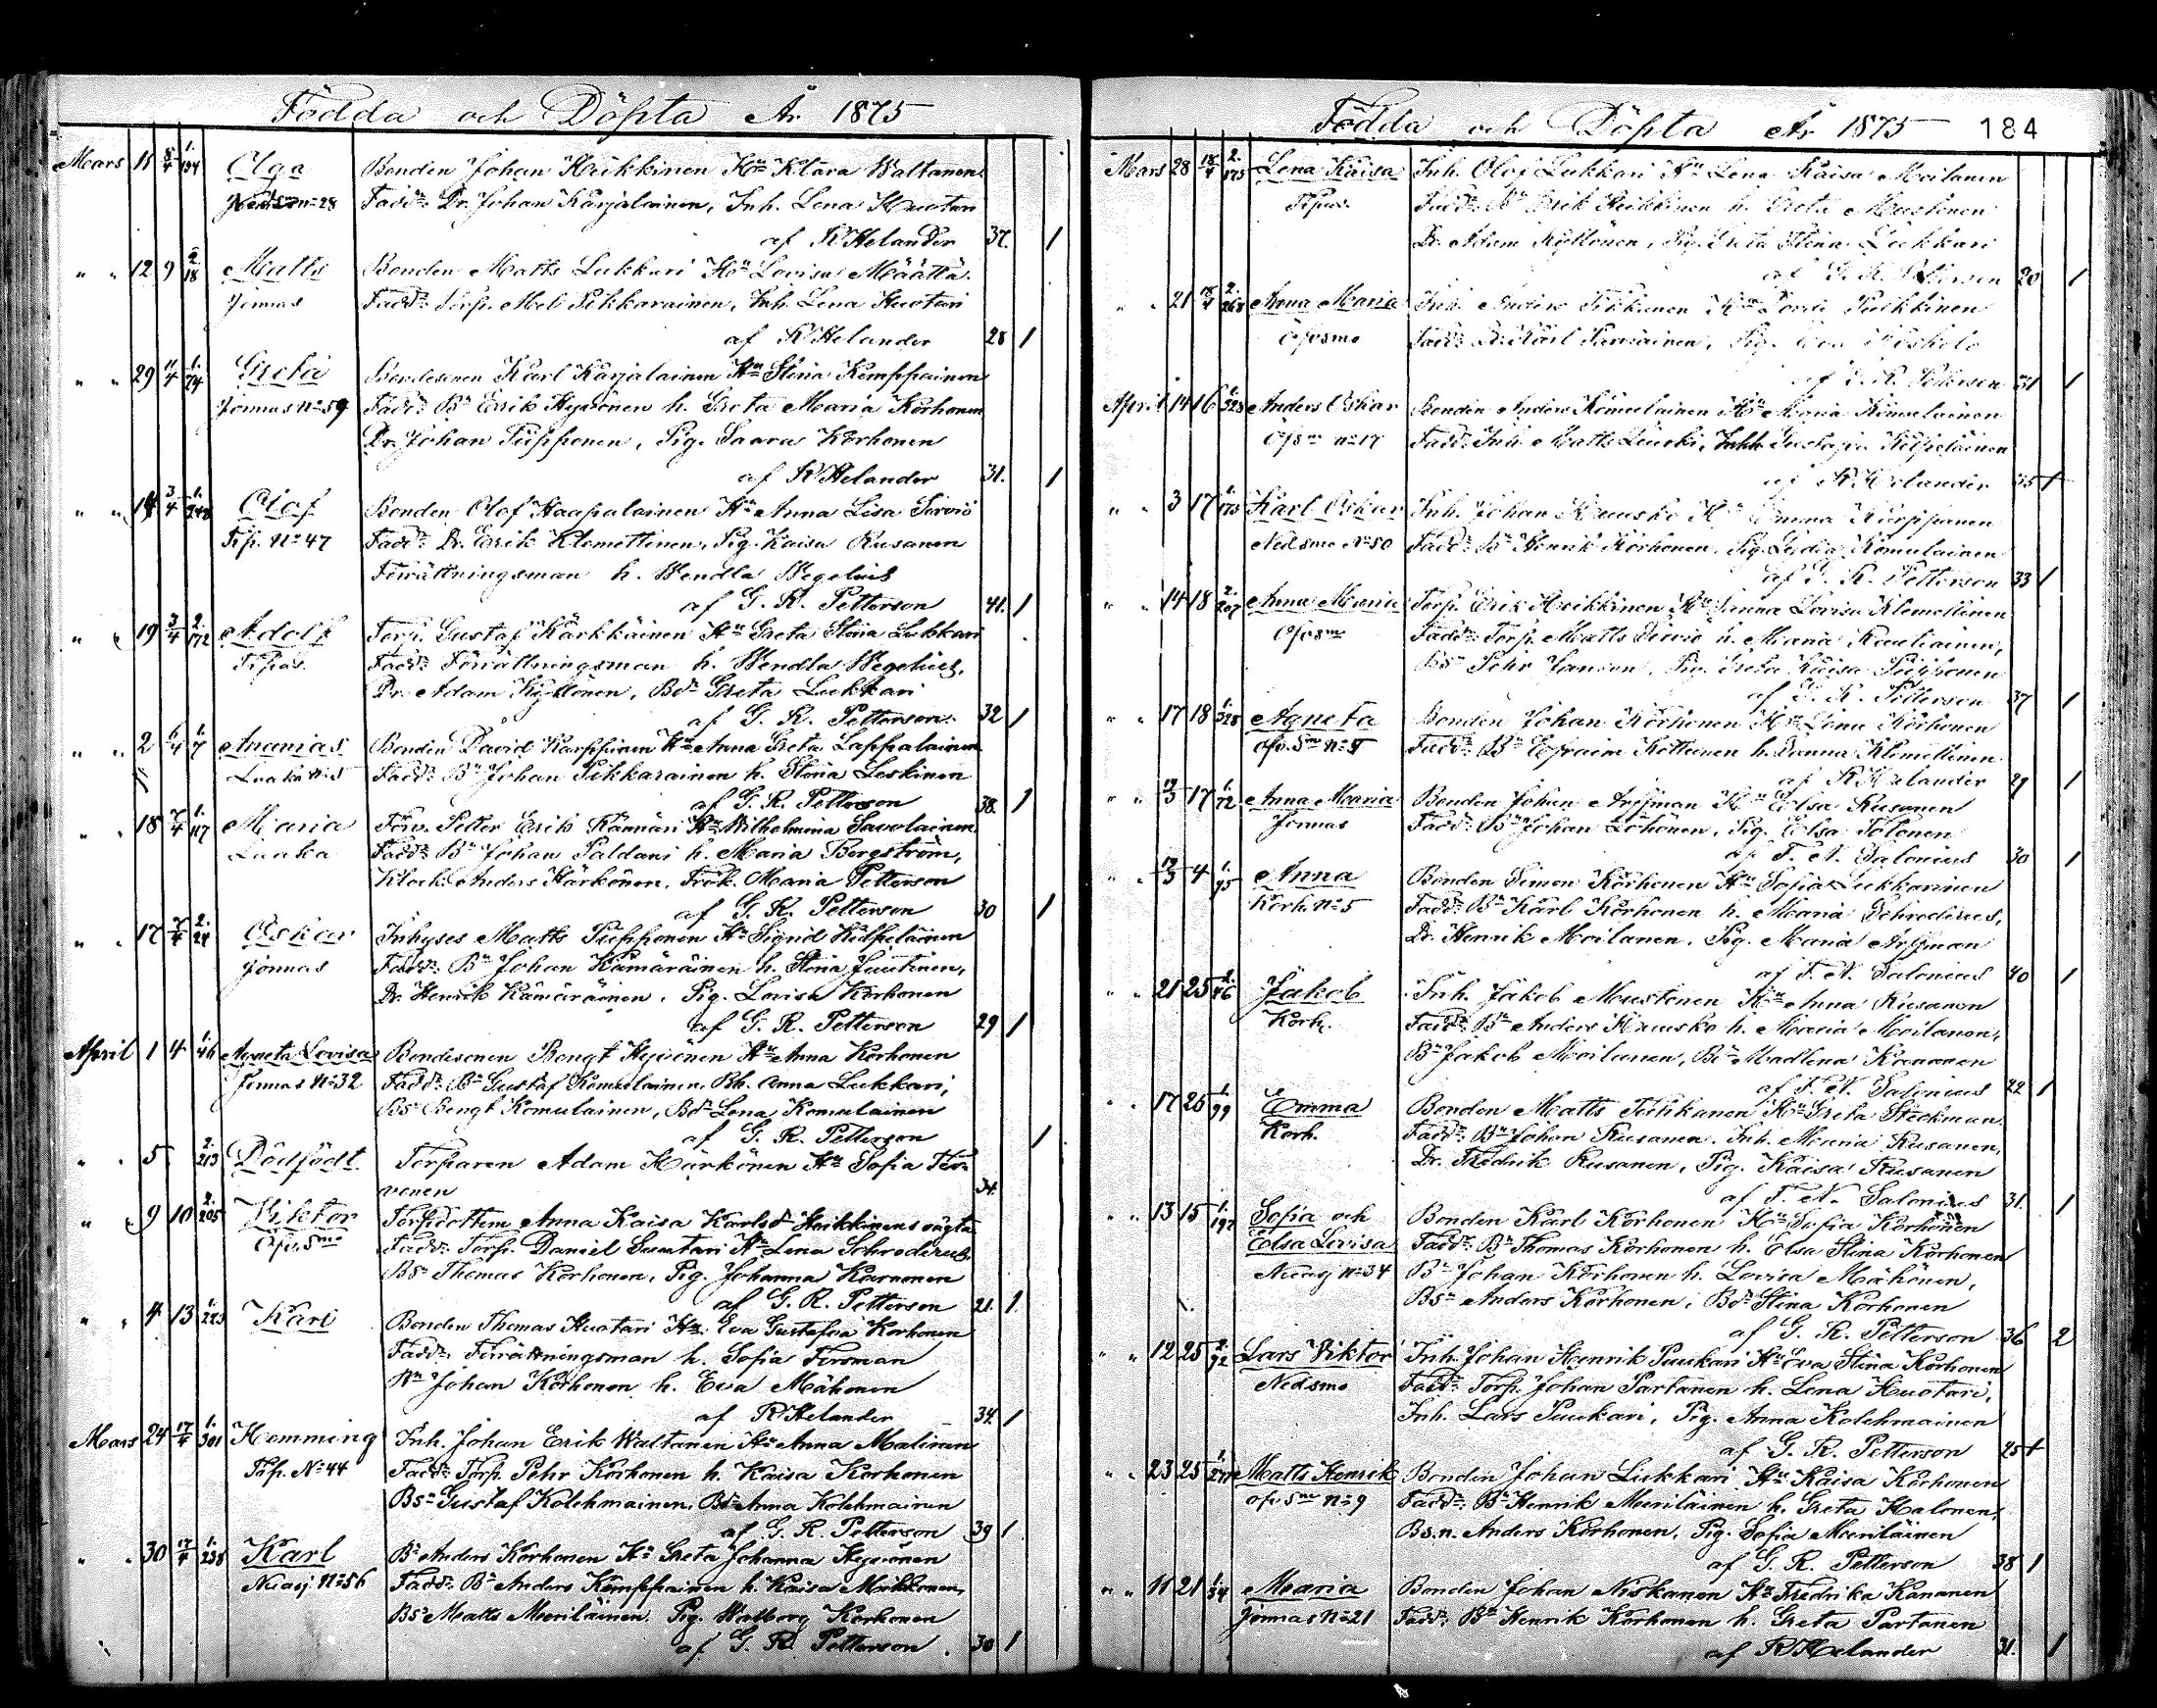 Födda och Döpta År 1875
Mars 11 8/4 1. 194 Olga Bonden Johan Heikkinen Hu Klara Waltanen
Nedsmo no 28 Fadd: Dr. Johan Karjalainen, Inh. Lena Huotari
af R Helander 37. 1
" " 12 9 2 18 Matts Bonden Matts Lukkari Hu Lovisa Määttä
Jormas Fadd: Torp. Mol Pikkarainen, Inh. Lena Huotari
af R Helander 28 1
" " 29 4 1. 74 Greta Bondesonen Karl Karjalainen Hu Stina Kemppainen
Jormas no 59 Fadd: Bn Erik Hyvönen h. Greta Maria Korhonen
Dr. Johan Piipponen, Pig. Saara Korhonen
af R Helander 31. 1
" " 14 3/4 1. 248 Olof Bonden Olof Haapalainen Hu Anna Lisa Sirviö
Tip. No 47 Fadd: Dr. Erik Klemettinen, Pig. Kaisa Rusanen
Förrättningsman h. Wendla Wegelius
af G. R. Petterson 41. 1
" " 19 3/4 2. 172 Adolf Torp. Gustaf Kärkkäinen Hu Greta Stina Lukkari
Tipas. Fadd: Förrättningsman h. Wendla Wegelius,
Dr. Adam Kyllönen, Bdr Greta Lukkari
af G. R. Petterson. 32 1
" " 2 6/4 1. 7 Ananias Bonden David Karppinen Hu Anna Greta Lappalainen
Laaka no 5 Fadd: Bn Johan Pikkarainen h. Stina Leskinen
af G. R. Petterson 38. 1
" " 18 7/4 1. 117 Maria Förv. Petter Erik Kännäri Hu Wilhelmina Savolainen
Laaka Fadd: Bn Johan Paldani h. Maria Bergström,
Klock. Anders Härkönen, Frök. Maria Petterson
af G. R. Petterson 30 1
" " 17 7/4 2. 24 Oskar Inhyses Matts Piipponen Hu Sigrid Kilpeläinen
Jormas Fadd: Bn Johan Kämäräinen h. Stina Juntinen,
Dr. Henrik Kämäräinen, Pig. Lovisa Korhonen
af G. R. Petterson 29 1
April 1 4 1. 46 Agneta Lovisa Bondesonen Bengt Hyvönen Hu Anna Korhonen
Jormas No 32 Fadd: Bn Gustaf Komulainen, Bh. Anna Lukkari,
Bsn Bengt Komulainen, Bdr Lena Komulainen
af G. R. Petterson 1
" " 5 2. 213 Dödfödt Torparen Adam Härkönen Hu Sofia Ter-
vonen 34
" " 9 10 2. 205 Viktor Torpdottern Anna Kaisa Karlsdr Heikkinens oägta
Ofv. Smo Fadd: Torp. Daniel Suutari Hu Lena Schroderus,
Bsn Thomas Korhonen, Pig. Johanna Karvonen
af G. R. Petterson 21. 1
" " 4 13 1. 223 Karl Bonden Thomas Huotari Hu Eva Gustafva Korhonen
Fadd: Förrättningsman h. Sofia Forsman
Bn Johan Korhonen h. Eva Mähönen
af R Helander 34. 1
Mars 24 17/4 1. 301 Hemming Inh. Johan Erik Waltanen Hu Anna Malinen
Tip. No 44 Fadd: Torp. Pehr Korhonen h. Kaisa Korhonen
Bsn Gustaf Kolehmainen, Bdr Anna Kolehmainen
af G. R. Petterson 39 1
" " 30 17/4 1. 238 Karl Bn Anders Korhonen Hu Greta Johanna Hyvönen
Nuasj No 56 Fadd: Bn Anders Kemppainen h. Kaisa Mikkonen,
Bsn Matts Meriläinen. Pig. Walborg Korhonen
af G. R. Petterson. 30 1
Födda och Döpta År 1875 184
Mars 28 18/4 2. 173 Lena Kaisa Inh. Olof Lukkari Hu Lena Kaisa Moilanen
Tipas. Fadd: Bn Erik Heikkinen h. Greta Mustonen
Dr. Adam Kyllönen, Pig. Greta Stina Lukkari
af G. R. Petterson 20 1
" " 21 18/4 2. 268 Anna Maria Inh. Anders Tikkanen Hu Pulkkinen
Ofvsmo Fadd: Dr. Karl Parviainen, Pig. Eva
af G. R. Petterson 31 1
April 14 16 1. 328 Anders Oskar Bonden Anders Komulainen Hu Maria Komulainen
Ofsm no 17 Fadd: Inh. Matts Gustafva Kilpeläinen
af R Helander 35 1
" " 3 17 1. 175 Karl Oskar Inh. Johan Kruusko Hu Emma Karppanen
Nedsmo No 50 Fadd: Bn Henrik Korhonen, Pig. Lydia Komulainen
af G. R. Petterson 33 1
" " 14 18 2. 207 Anna Maria Torp. Erik Heikkinen Hu Sanna Lovisa Klemettinen
Ofvsm Fadd: Torp. Matts Sirviö h. Maria Rautiainen,
Bsn Pehr Pig. Greta Kaisa Piipponen
af G. R. Petterson 37 1
" " 17 18 1. 328 Agneta Bonden Johan Korhonen Hu Lena Korhonen
ofv. Sm no 5 Fadd: Bn Efraim Kettunen h. Anna Klemettinen
af R Helander 29 1
" " 12/3 17 1. 72 Anna Maria Bonden Johan Arffman Hu Elsa Rusanen
Jormas Fadd: Bn Johan Löhönen, Pig. Elsa Tolonen
af F. N. Salonius 30 1
" " 12/3 4 1. 95 Anna Bonden Simon Korhonen Hu Sofia Lukkarinen
Korh. no 5 Fadd: Bn Karl Korhonen h. Maria Schroderus,
Dr. Henrik Moilanen, Pig. Maria Arffman
af F. N. Salonius 40 1
" " 21 25 2. 46 Jakob Inh. Jakob Mustonen Hu Anna Rusanen
Korh. Fadd: Bn Anders Kruusko h. Maria Moilanen,
Bn Jakob Moilanen, Bdr Madlena Karvonen
af F. N. Salonius 22 1
" " 17 25 1. 99 Emma Bonden Matts Tuhkanen Hu Greta Stockman
Korh. Fadd: Bn Johan Rusanen, Inh. Maria Rusanen,
Dr. Fredrik Rusanen, Pig. Kaisa Rusanen
af F. N. Salonius 31. 1
" " 13 15 1. 197 Sofia och Bonden Karl Korhonen Hu Sofia Korhonen
Elsa Lovisa Fadd: Bn Thomas Korhonen h. Elsa Stina Korhonen
Nuasj No 34 Bn Johan Korhonen h. Lovisa Mähönen,
Bsn Anders Korhonen, Bdr Stina Korhonen
af G. R. Petterson 36 2
" " 12 25 2. 92 Lars Viktor Inh. Johan Henrik Puukari Hu Eva Stina Korhonen
Nedsmo Fadd: Torp. Johan Partanen h. Lena Huotari,
Inh. Lars Puukari, Pig. Anna Kolehmainen
af G. R. Petterson 25 1
" " 23 25 1. Matts Henrik Bonden Johan Lukkari Hu Kaisa Korhonen
ofv Sm no 9 Fadd: Bn Henrik Meriläinen h. Greta Halonen,
Bs.n. Anders Korhonen, Pig. Sofia Meriläinen
af G. R. Petterson 38 1
" " 11 21 1. 34 Maria Bonden Johan Niskanen Hu Fredrika Kananen
Jormas No 21 Fadd: Bn Henrik Korhonen h. Greta Partanen
af R Helander 31. 1